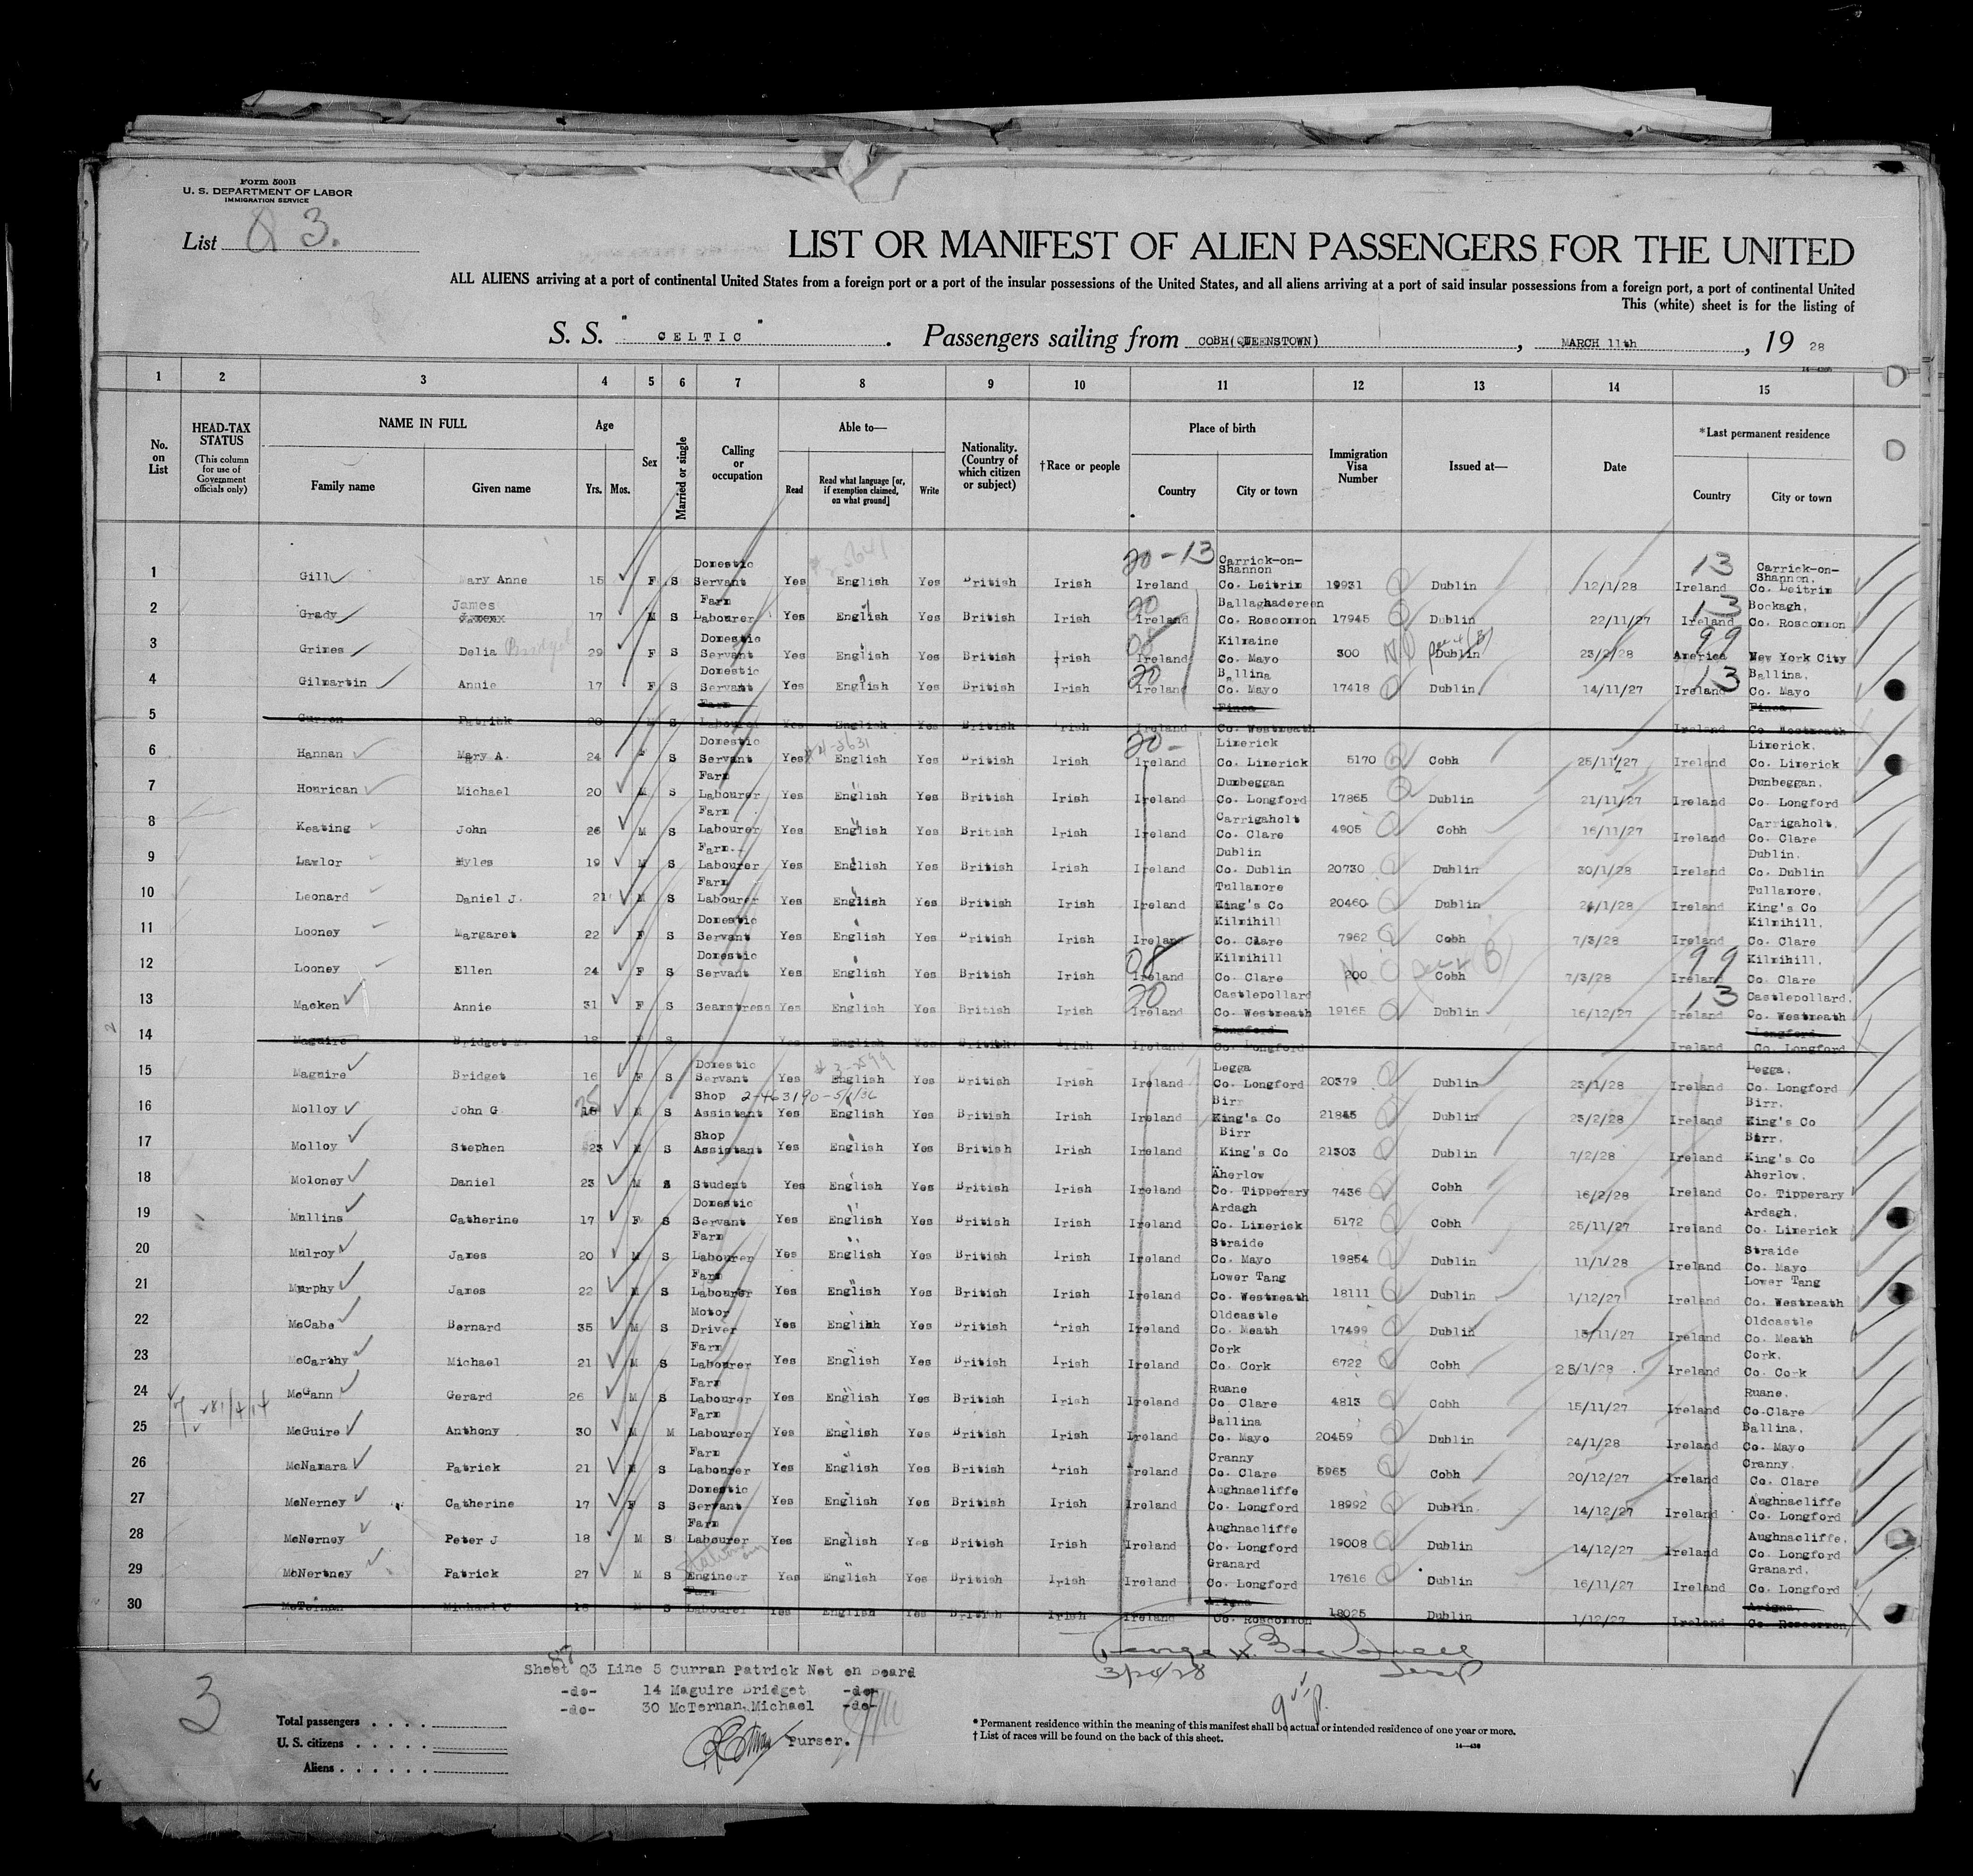 Form 500B
U. S. DEPARTMENT OF LABOR
IMMIGRATION SERVICE
List 3.
LIST OR MANIFEST OF ALIEN PASSENGERS FOR THE UNITED
ALL ALIENS arriving at a port of continental United States from a foreign port or a port of the insular possessions of the United States, and all aliens arriving at a port of said insular possessions from a foreign port, a port of continental United
This (white) sheet is for the listing of
S. S. " CELTIC " . Passengers sailing from COBH(QUEENSTOWN) , MARCH 11th , 19 28
1 2 3 4 5 6 7 8 9 10 11 12 13 14 15
No. on List
HEAD-TAX STATUS (This column for use of Government officials only)
NAME IN FULL Family name Given name
Age Yrs. Mos.
Sex
Married or single
Calling or occupation
Able to— Read Read what language [or, if exemption claimed, on what ground] Write
Nationality. (Country of which citizen or subject)
†Race or people
Place of birth Country City or town
Immigration Visa Number
Issued at—
Date
*Last permanent residence Country City or town
1 Gill Mary Anne 15 F S Domestic Servant Yes English Yes British Irish 20-13 Ireland Carrick-on-Shannon Co. Leitrim 19931 Dublin 12/1/28 13 Ireland Carrick-on-Shannon. Co. Leitrim
2 Grady James 17 M S Farm Labourer Yes English Yes British Irish 20 Ireland Ballaghadereen Co. Roscommon 17945 Dublin 22/11/27 13 Ireland Bockagh. Co. Roscommon
3 Grimes Delia Bridget 29 F S Domestic Servant Yes English Yes British Irish 08 Ireland Kilmaine Co. Mayo 300 Dublin 23/2/28 99 America New York City
4 Gilmartin Annie 17 F S Domestic Servant Yes English Yes British Irish 20 Ireland Ballina Co. Mayo 17418 Dublin 14/11/27 13 Ireland Ballina. Co. Mayo
5 Curran Patrick 20 M S Farm Labourer Yes English Yes British Irish Ireland Finea Co. Westmeath Ireland Finea. Co. Westmeath
6 Hannan Mary A. 24 F S Domestic Servant Yes English Yes British Irish 20- Ireland Limerick Co. Limerick 5170 Cobh 25/11/27 Ireland Limerick. Co. Limerick
7 Hourican Michael 20 M S Farm Labourer Yes English Yes British Irish Ireland Dunbeggan Co. Longford 17865 Dublin 21/11/27 Ireland Dunbeggan. Co. Longford
8 Keating John 26 M S Farm Labourer Yes English Yes British Irish Ireland Carrigaholt Co. Clare 4905 Cobh 16/11/27 Ireland Carrigaholt. Co. Clare
9 Lawlor Myles 19 M S Farm Labourer Yes English Yes British Irish Ireland Dublin Co. Dublin 20730 Dublin 30/1/28 Ireland Dublin. Co. Dublin
10 Leonard Daniel J. 21 M S Farm Labourer Yes English Yes British Irish Ireland Tullamore King's Co 20460 Dublin 24/1/28 Ireland Tullamore. King's Co
11 Looney Margaret 22 F S Domestic Servant Yes English Yes British Irish Ireland Kilmihill Co. Clare 7962 Cobh 7/3/28 Ireland Kilmihill. Co. Clare
12 Looney Ellen 24 F S Domestic Servant Yes English Yes British Irish 08 Ireland Kilmihill Co. Clare 200 Cobh 7/3/28 99 Ireland Kilmihill. Co. Clare
13 Macken Annie 31 F S Seamstress Yes English Yes British Irish 20 Ireland Castlepollard Co. Westmeath 19165 Dublin 16/12/27 13 Ireland Castlepollard. Co. Westmeath
14 Maguire Bridget 18 F S Yes English Yes British Irish Ireland Longford Co. Longford Ireland Longford Co. Longford
15 Maguire Bridget 16 F S Domestic Servant Yes English Yes British Irish Ireland Legga Co. Longford 20379 Dublin 23/1/28 Ireland Legga. Co. Longford
16 Molloy John G. 25 M S Shop Assistant 2-463190-5/1/36 Yes English Yes British Irish Ireland Birr King's Co 21845 Dublin 23/2/28 Ireland Birr. King's Co
17 Molloy Stephen 23 M S Shop Assistant Yes English Yes British Irish Ireland Birr King's Co 21303 Dublin 7/2/28 Ireland Birr. King's Co
18 Moloney Daniel 23 M S Student Yes English Yes British Irish Ireland Aherlow Co. Tipperary 7436 Cobh 16/2/28 Ireland Aherlow. Co. Tipperary
19 Mullins Catherine 17 F S Domestic Servant Yes English Yes British Irish Ireland Ardagh Co. Limerick 5172 Cobh 25/11/27 Ireland Ardagh. Co. Limerick
20 Mulroy James 20 M S Farm Labourer Yes English Yes British Irish Ireland Straide Co. Mayo 19854 Dublin 11/1/28 Ireland Straide Co. Mayo
21 Murphy James 22 M S Farm Labourer Yes English Yes British Irish Ireland Lower Tang Co. Westmeath 18111 Dublin 1/12/27 Ireland Lower Tang Co. Westmeath
22 McCabe Bernard 35 M S Motor Driver Yes English Yes British Irish Ireland Oldcastle Co. Meath 17499 Dublin 15/11/27 Ireland Oldcastle Co. Meath
23 McCarthy Michael 21 M S Farm Labourer Yes English Yes British Irish Ireland Cork Co. Cork 6722 Cobh 25/1/28 Ireland Cork. Co. Cork
24 McGann Gerard 26 M S Farm Labourer Yes English Yes British Irish Ireland Ruane Co. Clare 4813 Cobh 15/11/27 Ireland Ruane. Co.Clare
25 McGuire Anthony 30 M M Farm Labourer Yes English Yes British Irish Ireland Ballina Co. Mayo 20459 Dublin 24/1/28 Ireland Ballina. Co. Mayo
26 McNamara Patrick 21 M S Farm Labourer Yes English Yes British Irish Ireland Cranny Co. Clare 5965 Cobh 20/12/27 Ireland Cranny. Co. Clare
27 McNerney Catherine 17 F S Domestic Servant Yes English Yes British Irish Ireland Aughnacliffe Co. Longford 18992 Dublin 14/12/27 Ireland Aughnacliffe Co. Longford
28 McNerney Peter J 18 M S Farm Labourer Yes English Yes British Irish Ireland Aughnacliffe Co. Longford 19008 Dublin 14/12/27 Ireland Aughnacliffe. Co. Longford
29 McNertney Patrick 27 M S Engineer Yes English Yes British Irish Ireland Granard Co. Longford 17616 Dublin 16/11/27 Ireland Granard. Co. Longford
30 McTernan Michael 18 M S Farm Labourer Yes English Yes British Irish Ireland Arigna Co. Roscommon 18025 Dublin 1/12/27 Ireland Arigna. Co. Roscommon
Sheet Q3 Line 5 Curran Patrick Not on board
-do- 14 Maguire Bridget -do-
-do- 30 McTernan. Michael -do-
Purser.
3
Total passengers
U. S. citizens
Aliens
* Permanent residence within the meaning of this manifest shall be actual or intended residence of one year or more.
† List of races will be found on the back of this sheet.